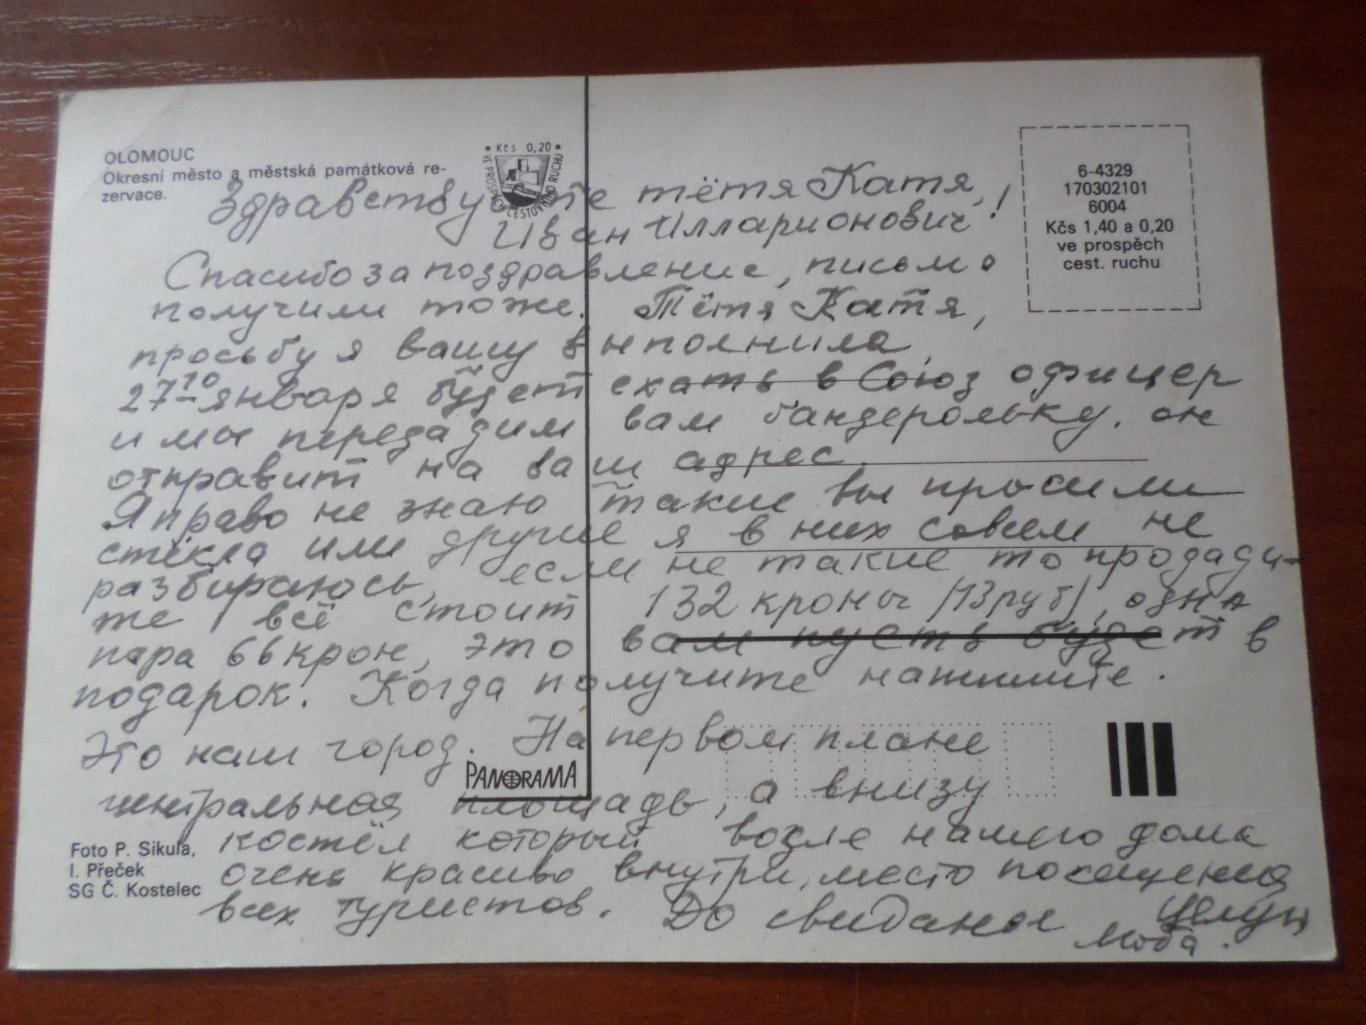 OLOMOUC
Okresní město a městská památková re-
zervace.
* Kčs 0,20 *
VE PROSPĚCH CESTOVNÍHO RUCHU
6-4329
170302101
6004
Kčs 1,40 a 0,20
ve prospěch
cest. ruchu
Здравствуйте тётя Катя,
Иван Илларионович!
Спасибо за поздравление, письмо
получили тоже. Тётя Катя,
просьбу я вашу выполнила,
27го января будет ехать в Союз офицер
и мы передадим вам бандерольку, он
отправит на ваш адрес.
Я право не знаю такие вы просили
стёкла или другие я в них совсем не
разбираюсь, если не такие то продади-
те всё стоит 132 кроны /13 руб/, одна
пара 66 крон, это вам пусть будет в
подарок. Когда получите напишите.
Это наш город. На первом плане
центральная площадь, а внизу
костёл который возле нашего дома
очень красиво внутри, место посещения
всех туристов. До свидания Целую
Люба.
PANORAMA
Foto P. Sikula,
I. Přeček
SG Č. Kostelec